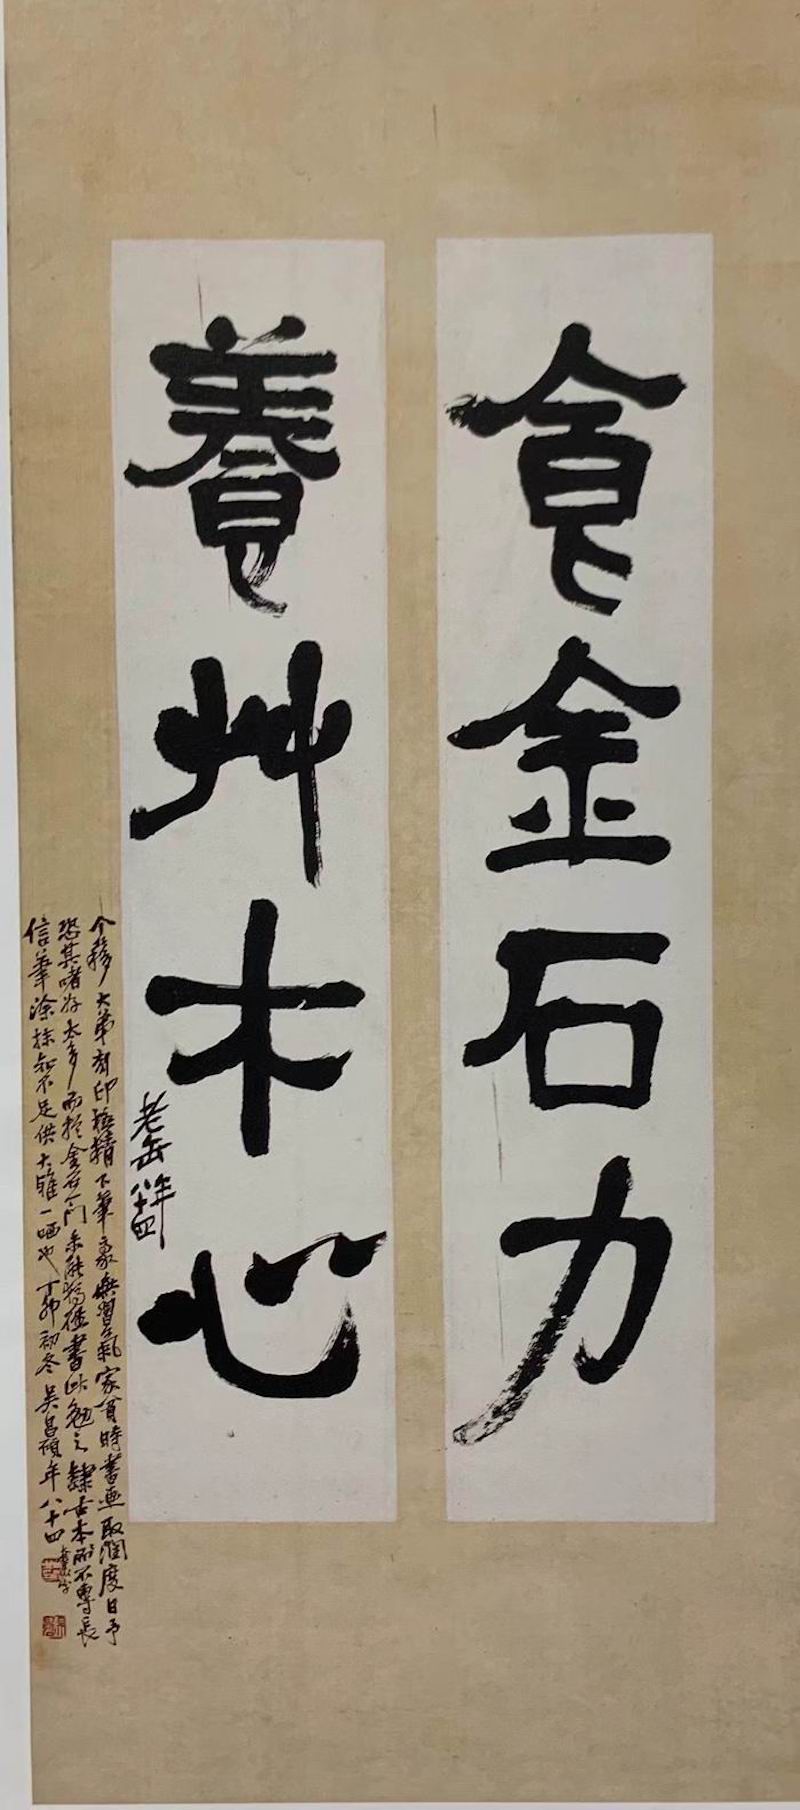 食金石力
養艸木心
老缶年八十四
个簃大弟刻印極精下筆處無習氣家貧時書画取潤度日予
恐其嗜好太多而於金石不能獨擅書此勉之隸古本所不專長
信筆涂抹知不足供大雅一哂也丁卯初冬吳昌碩年八十四